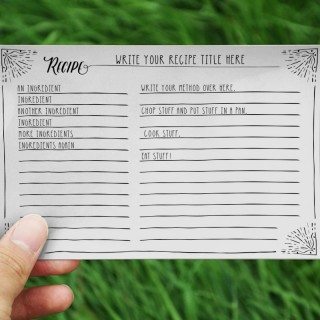 Recipe WRITE YOUR RECIPE TITLE HERE
AN INGREDIENT
INGREDIENT
ANOTHER INGREDIENT
INGREDIENT
MORE INGREDIENTS
INGREDIENTS AGAIN
WRITE YOUR METHOD OVER HERE.
CHOP STUFF AND PUT STUFF IN A PAN.
COOK STUFF.
EAT STUFF!